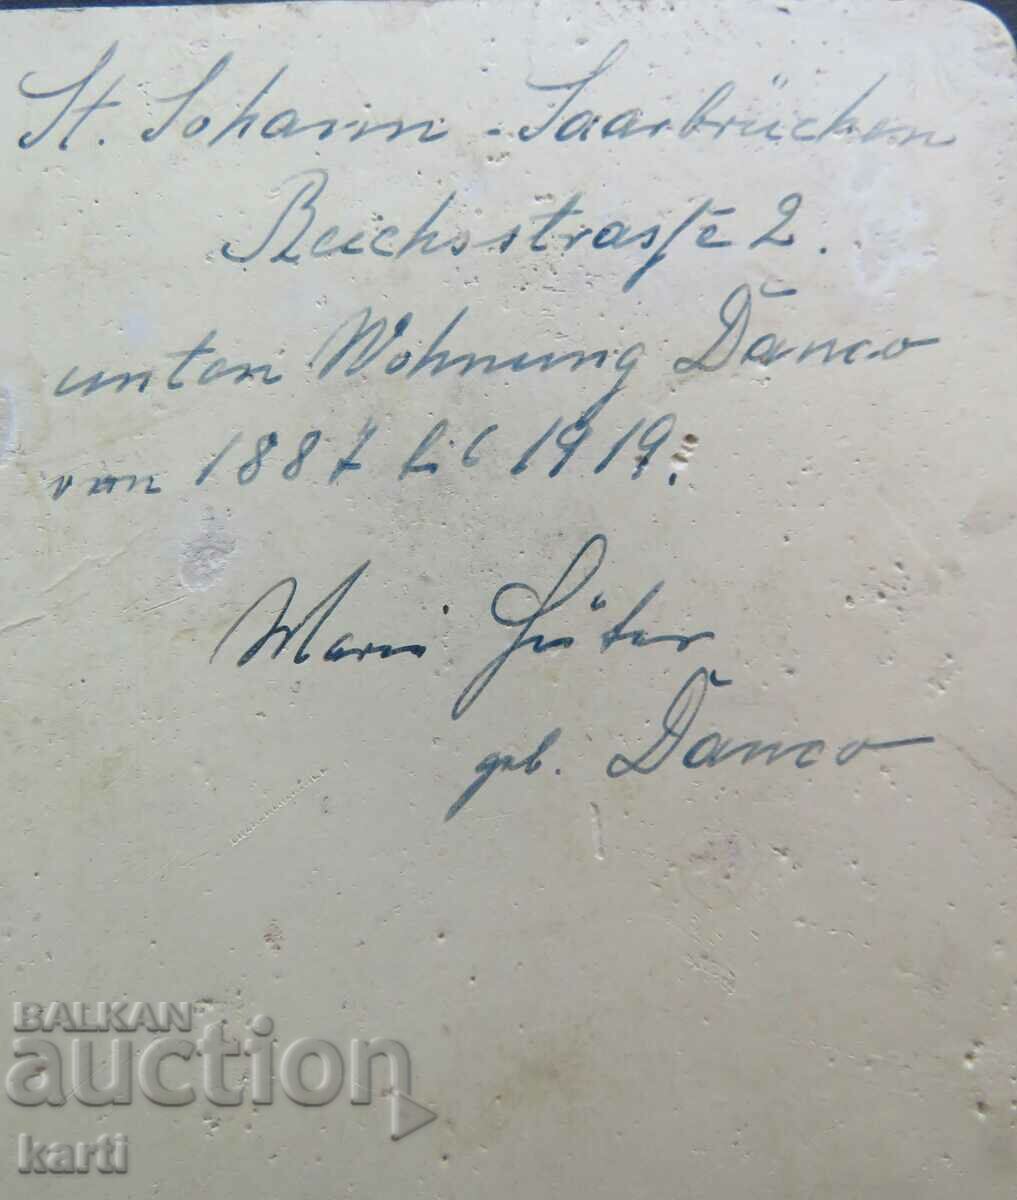 St. Johann - Saarbrücken
Reichsstrasse 2.
unten Wohnung Danco
von 1887 bis 1919.
Marie Hüter
geb. Danco
BALKAN
auction
karti